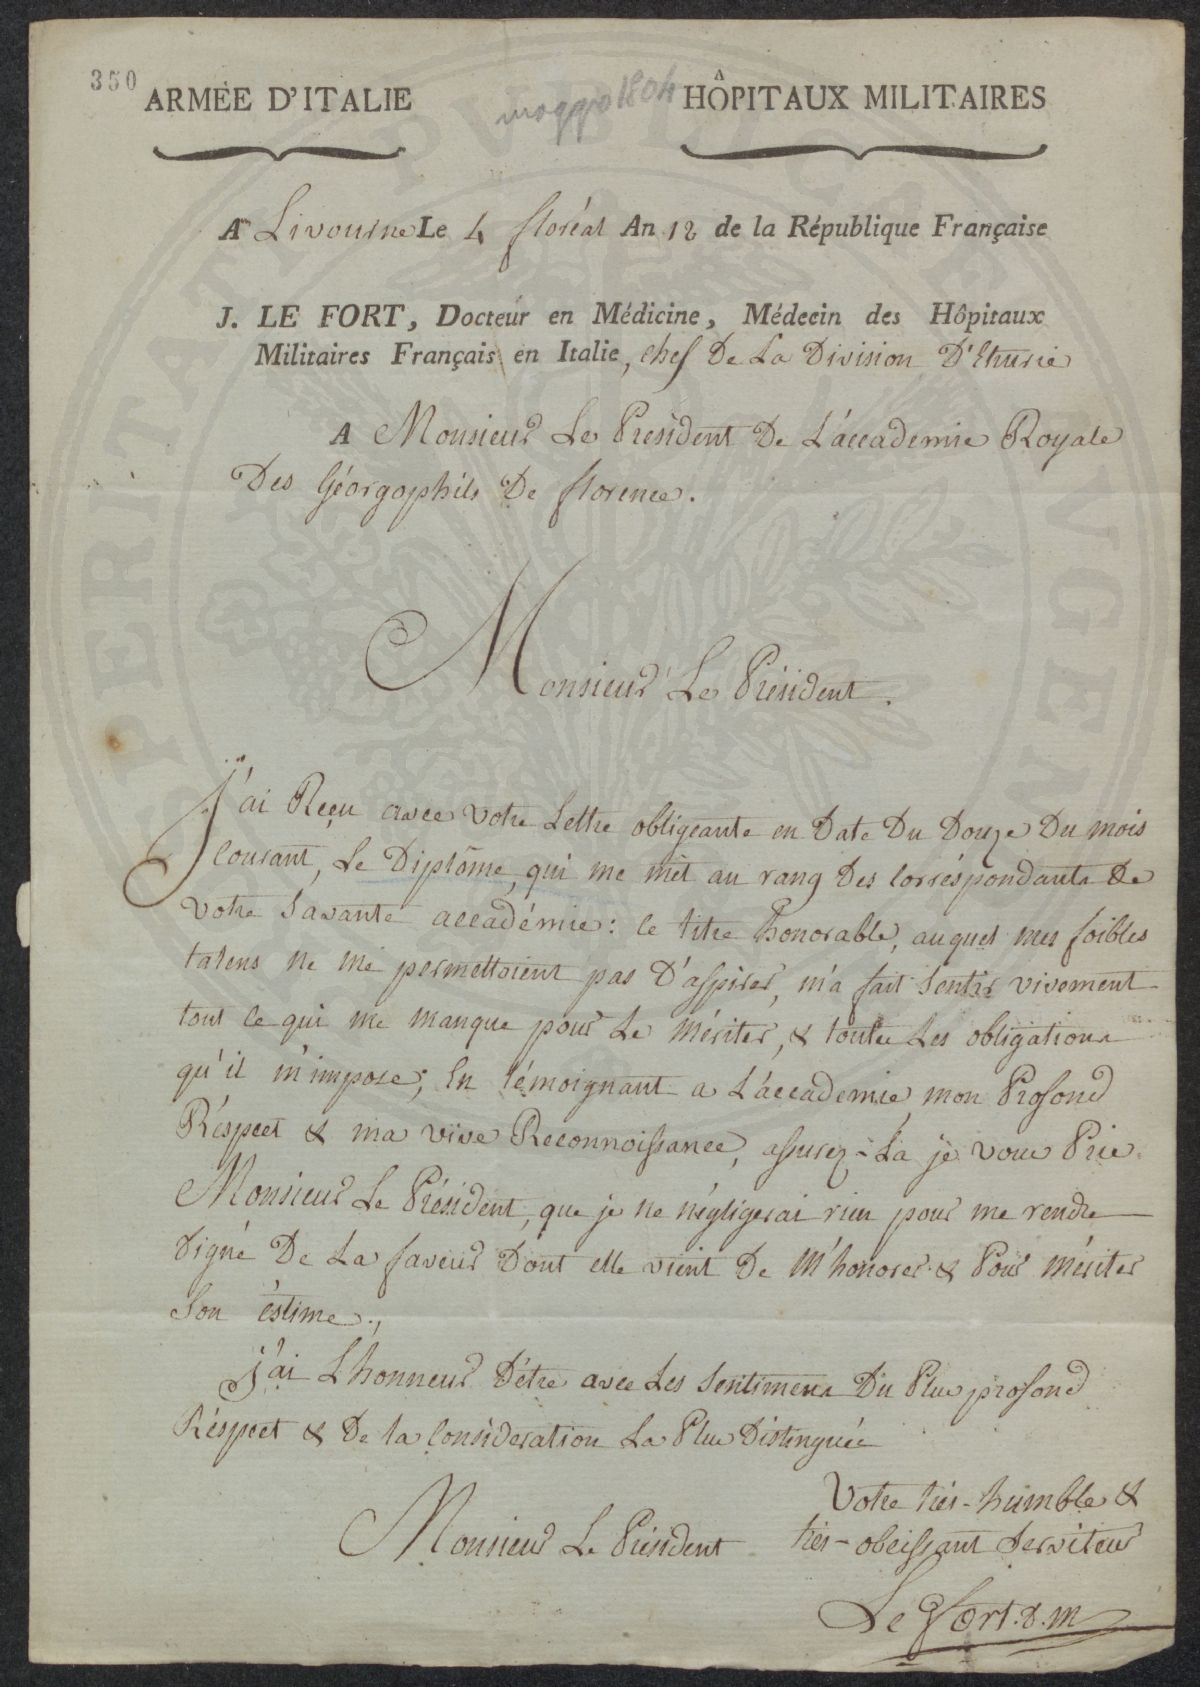 350
ARMÉE D'ITALIE
maggio 1804
HÔPITAUX MILITAIRES
A Livourne Le 4 floréal An 12 de la République Française
J. LE FORT, Docteur en Médicine, Médecin des Hôpitaux
Militaires Français en Italie, chef De La Division D'Etrurie
A Monsieur Le Président De L'accademie Royale
Des Géorgophils De florence.
Monsieur Le Président.
J'ai Reçu avec Votre Lettre obligeante en Date Du Douze Du mois
Courant, Le Diplôme, qui me mèt au rang Des Corréspondants De
Votre Savante accadémie: Ce titre honorable, auquel mes foibles
talens ne me permettoient pas D'aspirer, m'a fait Sentir vivement
tout ce qui me manque pour Le Mériter, & toutes Les obligations
qu'il m'impose; En témoignant a L'accademie mon Profond
Réspect & ma vive Reconnoissance, assurez-La je vous Prie
Monsieur Le Président, que je ne négligerai rien pour me rendre
Digne De La faveur Dont elle vient De M'honorer & Pour Mériter
Son éstime.,
J'ai L'honneur D'être avec Les Sentimens Du Plus profond
Réspect & De la Consideration La Plus Distinguée
Votre très-humble &
Monsieur Le Président très-obeissant Serviteur
Le Fort. D. M